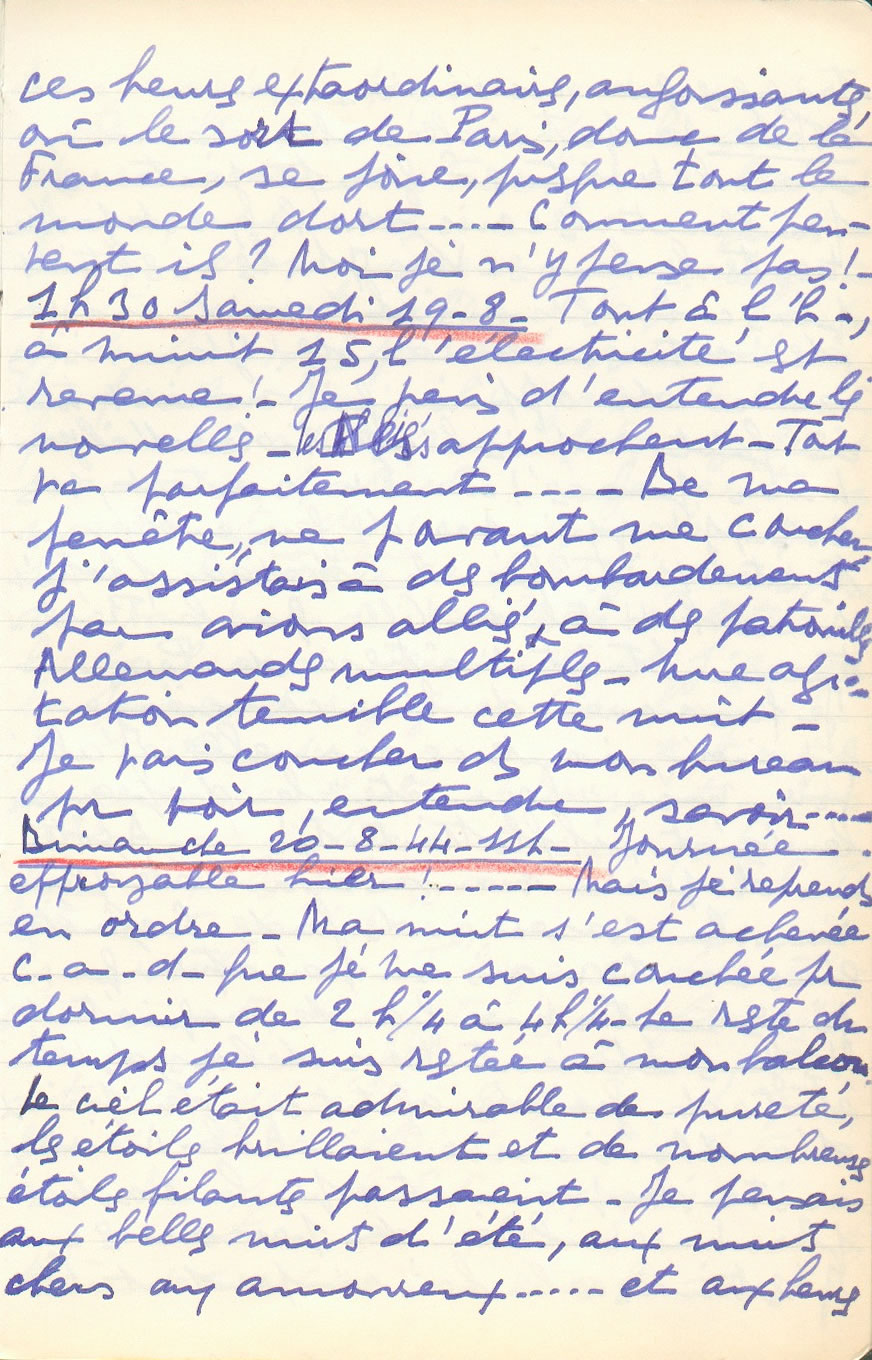 ces heures extraordinaires, angoissantes,
où le sort de Paris, donc de la
France, se joue, presque tout le
monde dort .... Comment peu-
vent ils ? Moi je n'y pense pas ! -
1h30 Samedi 19-8- Tout à l'h-,
à minuit 15, l'électricité est
revenue ! - Je viens d'entendre les
nouvelles - les Alliés approchent - Tout
va parfaitement .... De ma
fenêtre, ne pouvant me coucher
j'assistais à des bombardements
par avions alliés, à des patrouilles
Allemandes multiples - Une agi-
tation terrible cette nuit -
Je vais coucher ds mon bureau
pr voir, entendre, savoir....
Dimanche 20-8-44-11h- Journée
effroyable hier ! ..... Mais je reprends
en ordre - Ma nuit s'est achevée
c.-a.-d- que je me suis couchée pr
dormir de 2h1/4 à 4h1/4 - Le reste du
temps je suis restée à mon balcon.
le ciel était admirable de pureté,
les étoiles brillaient et de nombreuses
étoiles filantes passaient - Je pensais
aux belles nuits d'été, aux nuits
chers aux amoureux ..... et aux heures